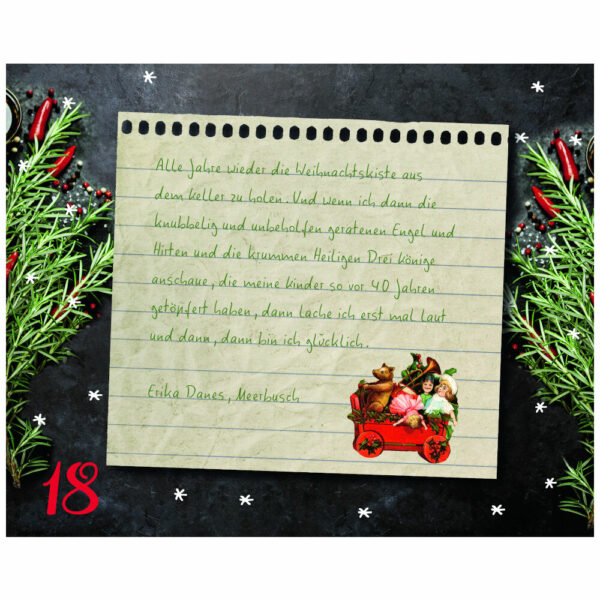 Alle Jahre wieder die Weihnachtskiste aus
dem Keller zu holen. Und wenn ich dann die
knubbelig und unbeholfen geratenen Engel und
Hirten und die krummen Heiligen Drei Könige
anschaue, die meine Kinder so vor 40 Jahren
getöpfert haben, dann lache ich erst mal laut
und dann, dann bin ich glücklich.
Erika Danes, Meerbusch
18